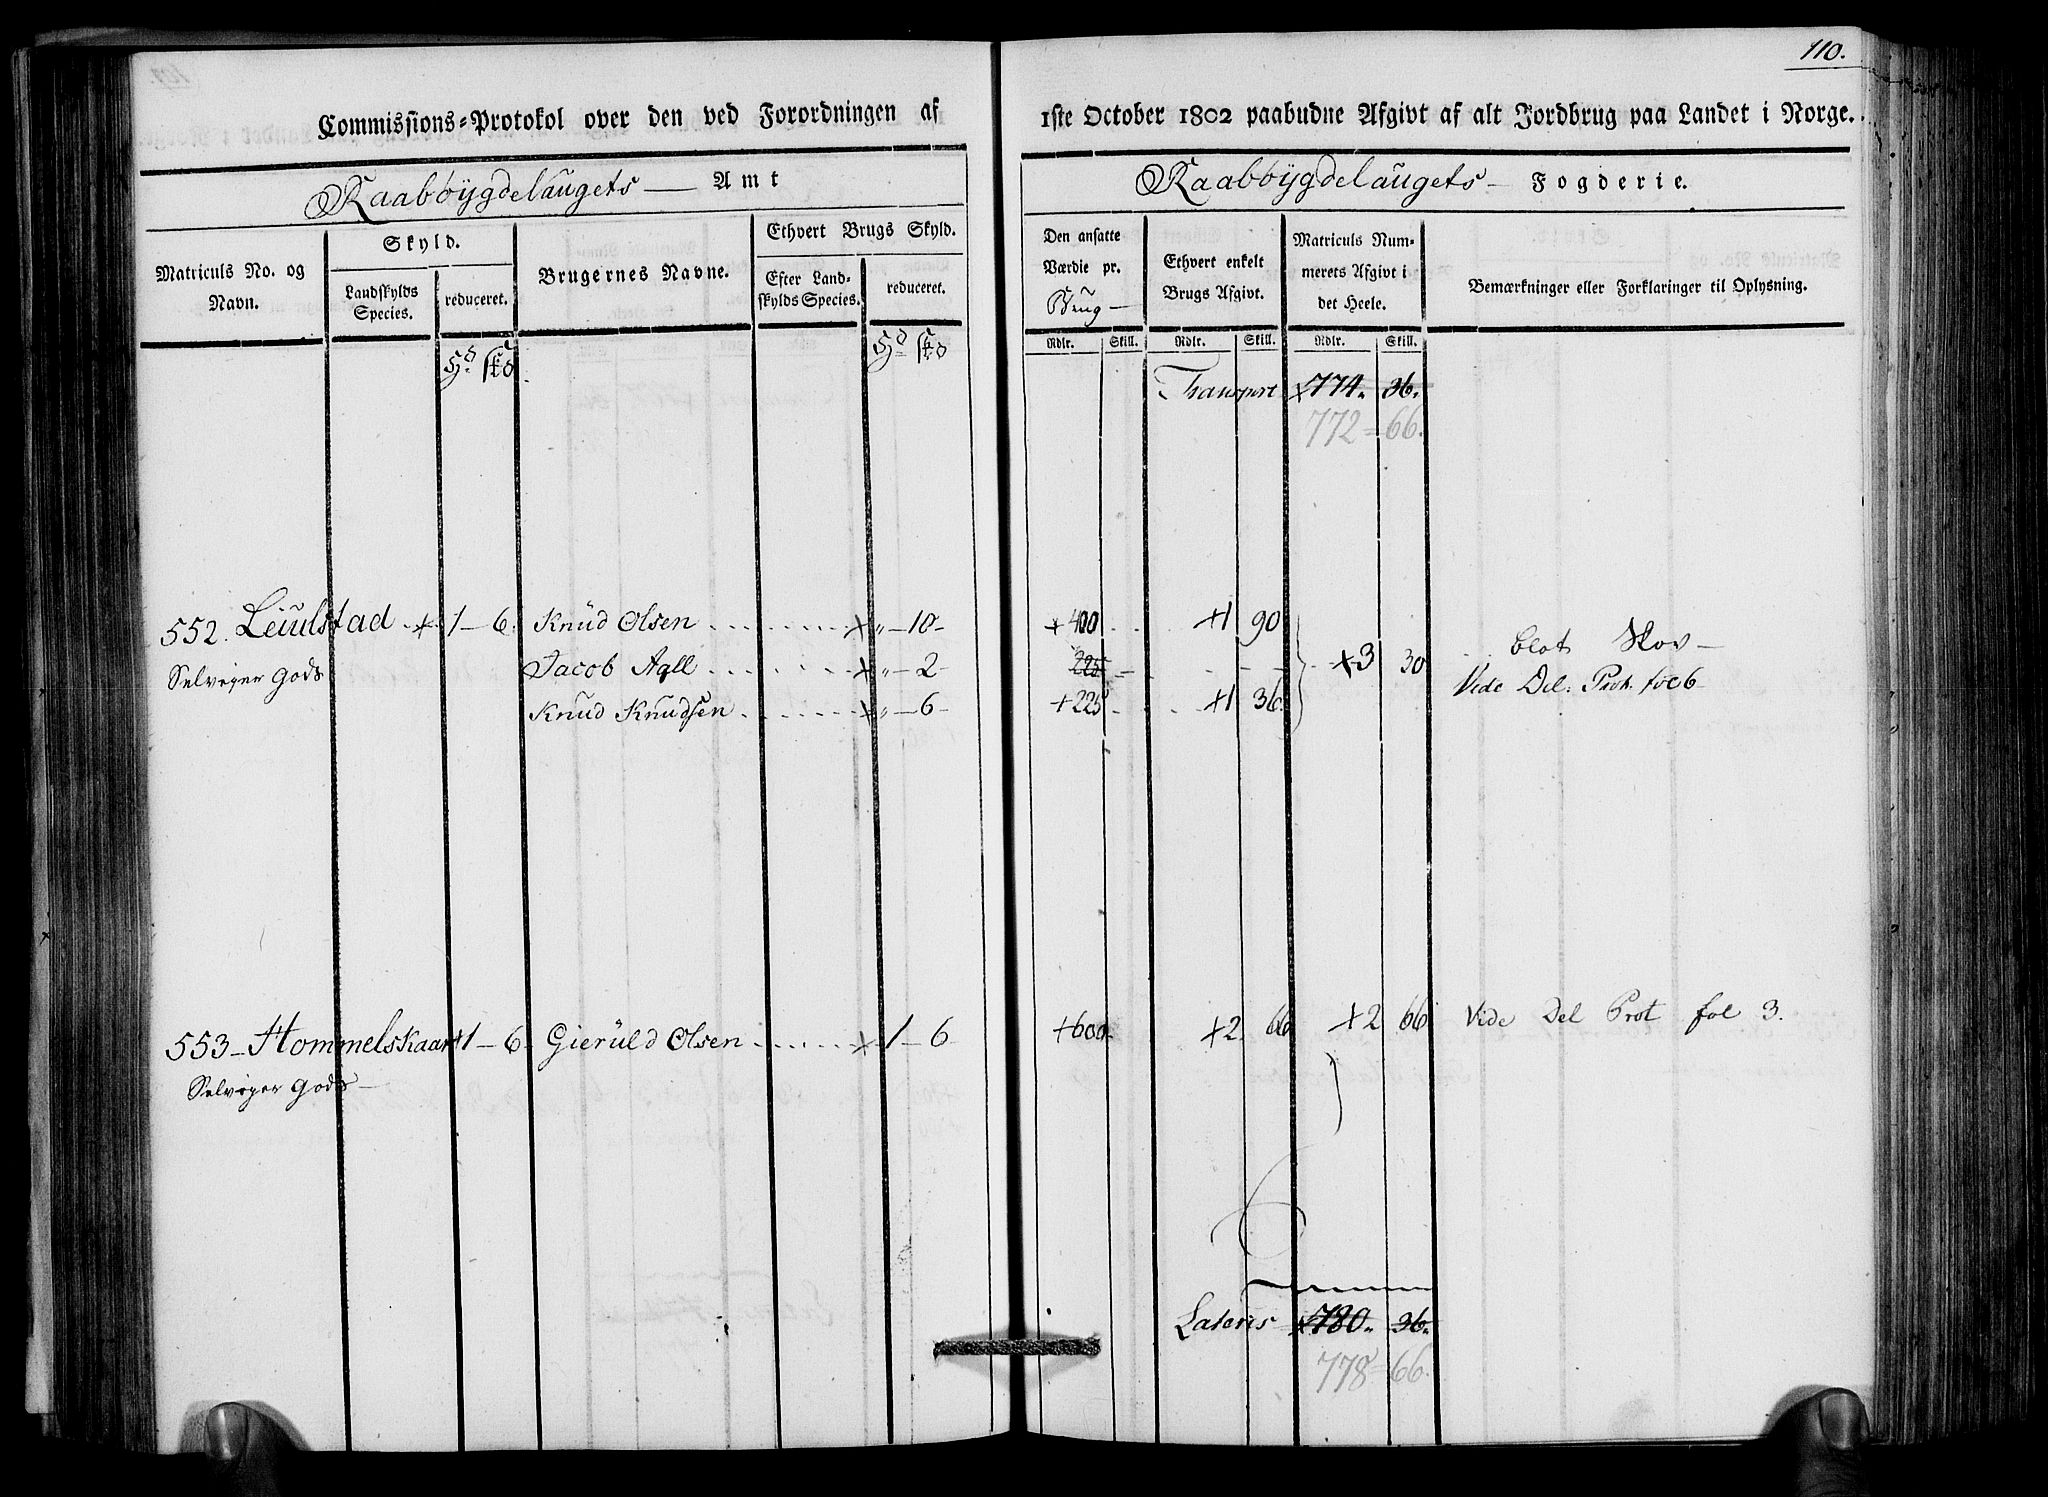 110.
Commissions-Protokol over den ved Forordningen af 1ste October 1802 paabudne Afgivt af alt Jordbrug paa Landet i Norge.
Raabøygdelaugets — Amt
Raabøygdelaugets — Fogderie.
Matriculs No. og Navn.
Skyld.
Landskylds Species.
reduceret.
Brugernes Navne.
Ethvert Brugs Skyld.
Efter Landskylds Species.
reduceret.
Den ansatte Værdie pr. Brug —
Ethvert enkelt Brugs Afgivt.
Matriculs Nummerets Afgivt i det Heele.
Bemærkninger eller Forklaringer til Oplysning.
Rdlr. Skill. Rdlr. Skill. Rdlr. Skill.
Transport x774. 36.
772=66.
552. Leuulstad + 1-6. Knüd Olsen x „-10- +400 +1 90
Selveyer Gods Jacob Aall x „-2 225 +3 30 blot Skov —
Knud Knudsen x „-6- +225 +1 36. Vide Del: Prot. fol 6
553- Hommelskaar +1-6. Gierüld Olsen x 1-6- +600- +2. 66 +2 66 Vide Del Prot fol 3.
Selveyer Gods —
Lateris x780. 36.
778=66.